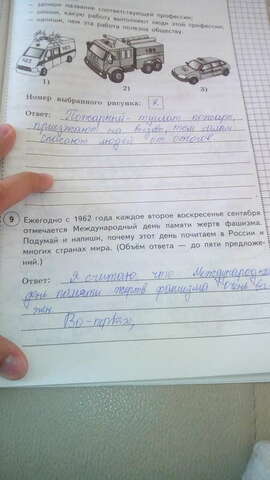 – запиши название соответствующей профессии;
– запиши, какую работу выполняют люди этой профессии;
– напиши, чем эта работа полезна обществу.
1)
2)
3)
Номер выбранного рисунка: 2.
Ответ: Пожарный – тушит пожары,
приезжают на вызов, тем самым
спасают людей от огня.
9
Ежегодно с 1962 года каждое второе воскресенье сентября
отмечается Международный день памяти жертв фашизма.
Подумай и напиши, почему этот день почитаем в России и
многих странах мира. (Объём ответа — до пяти предложе-
ний.)
Ответ: Я считаю, что Международ
день памяти жертв фашизма очень ва
жен.
Во-первых,